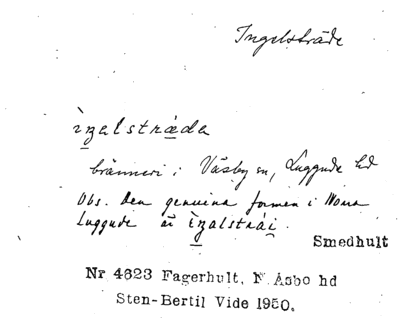 Ingelsträde
ìŋalstrǽda
bränneri i Väsby sn, Luggude hd
Obs. Den genuina formen i Norra
Luggude är ìŋalstrái.
Smedhult
Nr 4623 Fagerhult, N Åsbo hd
Sten-Bertil Vide 1950.